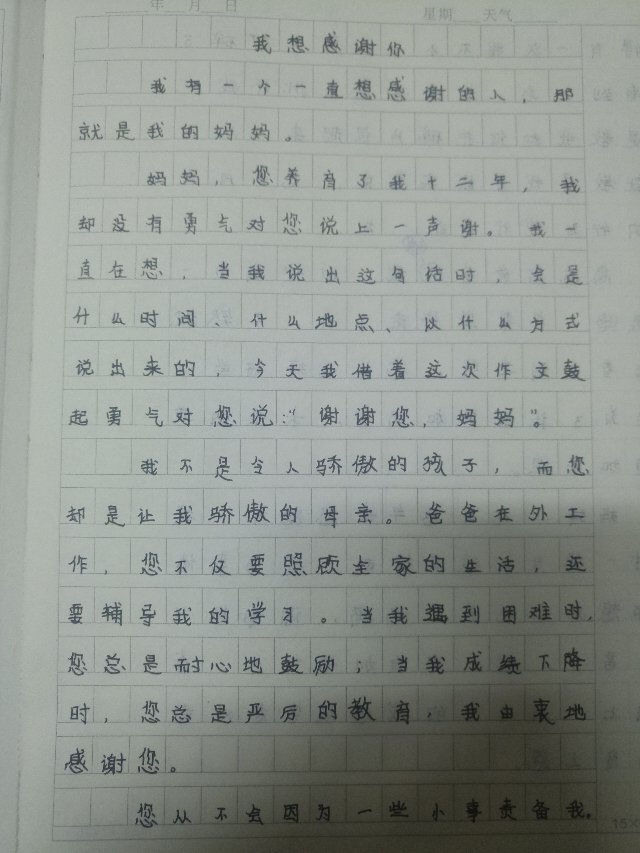 年 月 日 星期 天气
我想感谢你
我有一个一直想感谢的人，那
就是我的妈妈。
妈妈，您养育了我十二年，我
却没有勇气对您说上一声谢。我一
直在想，当我说出这句话时，会是
什么时间、什么地点、以什么方式
说出来的，今天我借着这次作文鼓
起勇气对您说：“谢谢您，妈妈”。
我不是令人骄傲的孩子，而您
却是让我骄傲的母亲。爸爸在外工
作，您不仅要照顾全家的生活，还
要辅导我的学习。当我遇到困难时，
您总是耐心地鼓励；当我成绩下降
时，您总是严后的教育，我由衷地
感谢您。
您从不会因为一些小事责备我。